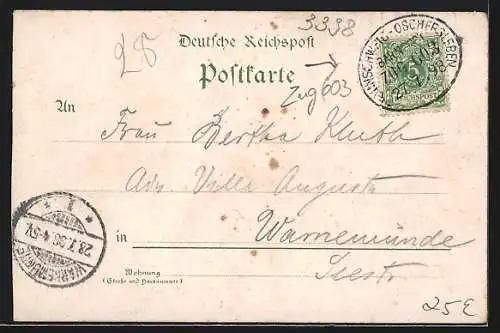 3398
28
Deutsche Reichspost
Postkarte
BRAUNSCHWEIG-OSCHERSLEBEN
BAHNPOST
ZUG
Zug 603
An
Frau Bertha Kluth
Adr. Villa Augusta
in Warnemünde
Seestr.
WARNEMÜNDE
28.7.98 4-5N.
Wohnung
(Straße und Hausnummer)
25E